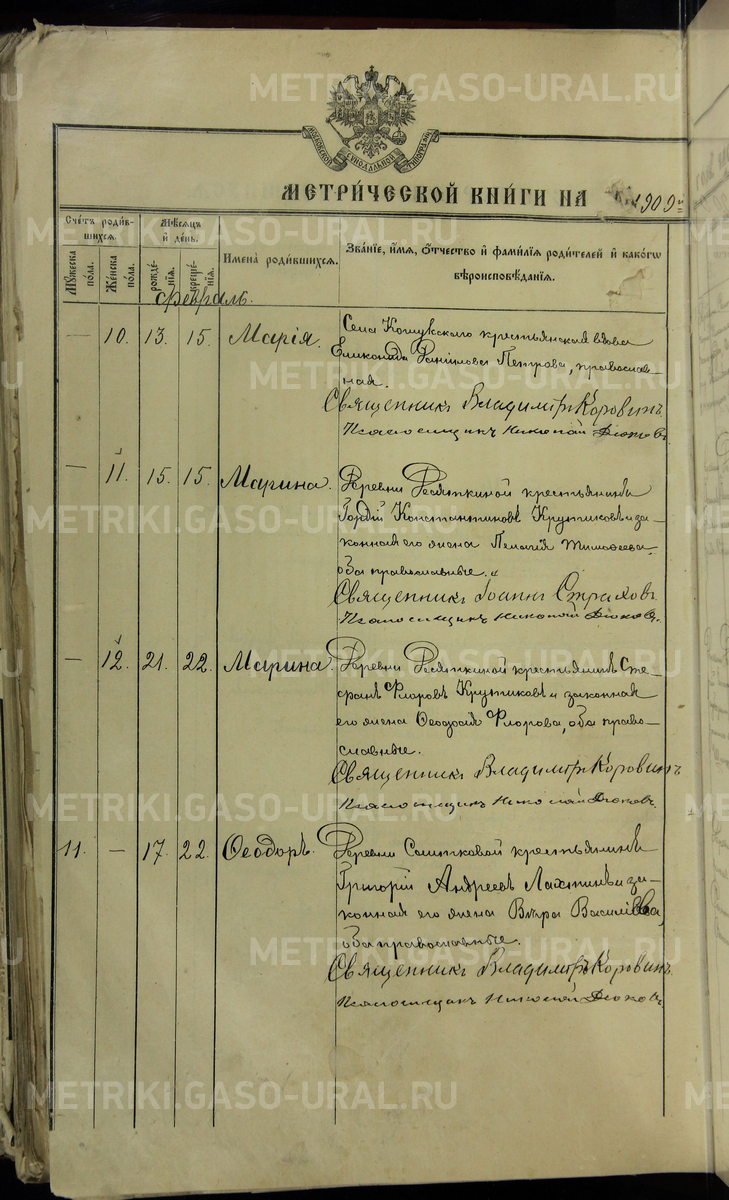 METRIKI.GASO-URAL.RU
МОСКОВСКОЙ СѴНОДАЛЬНОЙ ТѴПОГРАФІИ
МЕТРИ́ЧЕСКОЙ КНИ́ГИ НА 1909 й
Сче́тъ роди́вшихся.
Мꙋ́жеска по́ла.
Же́нска по́ла.
Мѣ́сяцъ и де́нь.
рожде́нія.
креще́нія.
Имена̀ роди́вшихся.
Зва́ніе, и́мя, о́тчество и фами́лія роди́телей и како́гѡ вѣроисповѣ́данія.
Февраль.
— 10. 13. 15. Марія. Села Кошукскаго крестьянская вдова
Еликонида Данилова Петрова, православ-
ная.
Священникъ Владиміръ Коровинъ.
Псаломщикъ Николай
— 11. 15. 15. Марина. Деревни Десяткиной крестьянинъ
Гордій Константиновъ Крутиковъ и за-
конная его жена Пелагія Тимофеева,
оба православные.
Священникъ Іоаннъ Страховъ.
Псаломщикъ Николай
— 12. 21. 22. Марина. Деревни Десяткиной крестьянинъ Сте-
фанъ Флоровъ Крутиковъ и законная
его жена Ѳеодосія Флорова, оба право-
славные.
Священникъ Владиміръ Коровинъ
Псаломщикъ Николай
11. — 17. 22. Ѳеодоръ. Деревни Саитковой крестьянинъ
Григорій Андреевъ Лахтинъ и за-
конная его жена Вѣра Василіева,
оба православные.
Священникъ Владиміръ Коровинъ.
Псаломщикъ Николай